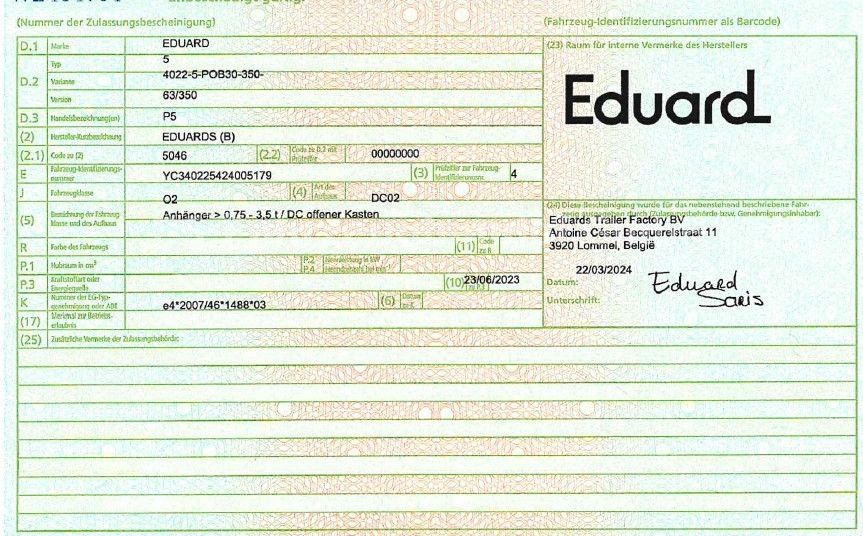 (Nummer der Zulassungsbescheinigung)
(Fahrzeug-Identifizierungsnummer als Barcode)
D.1 Marke EDUARD
Typ 5
D.2 Variante 4022-5-POB30-350-
Version 63/350
D.3 Handelsbezeichnung(en) P5
(2) Hersteller-Kurzbezeichnung EDUARDS (B)
(2.1) Code zu (2) 5046 (2.2) Code zu D.2 mit Prüfziffer 00000000
E Fahrzeug-Identifizierungs-
nummer YC340225424005179 (3) Prüfziffer zur Fahrzeug-
Identifizierungsnr. 4
J Fahrzeugklasse O2 (4) Art des Aufbaus DC02
(5) Bezeichnung der Fahrzeug-
klasse und des Aufbaus Anhänger > 0,75 - 3,5 t / DC offener Kasten
R Farbe des Fahrzeugs (11) Code zu R
P.1 Hubraum in cm³ P.2 Nennleistung in kW
P.4 Nenndrehzahl bei min⁻¹
P.3 Kraftstoffart oder
Energiequelle (10) 23/06/2023
K Nummer der EG-Typ-
genehmigung oder ABE e4*2007/46*1488*03 (6) Datum zu K
(17) Merkmal zur Betriebs-
erlaubnis
(25) Zusätzliche Vermerke der Zulassungsbehörde:
(23) Raum für interne Vermerke des Herstellers
Eduard
(24) Diese Bescheinigung wurde für das nebenstehend beschriebene Fahr-
zeug ausgegeben durch (Zulassungsbehörde bzw. Genehmigungsinhaber):
Eduards Trailer Factory BV
Antoine César Becquerelstraat 11
3920 Lommel, België
22/03/2024
Datum:
Eduard
Saris
Unterschrift: